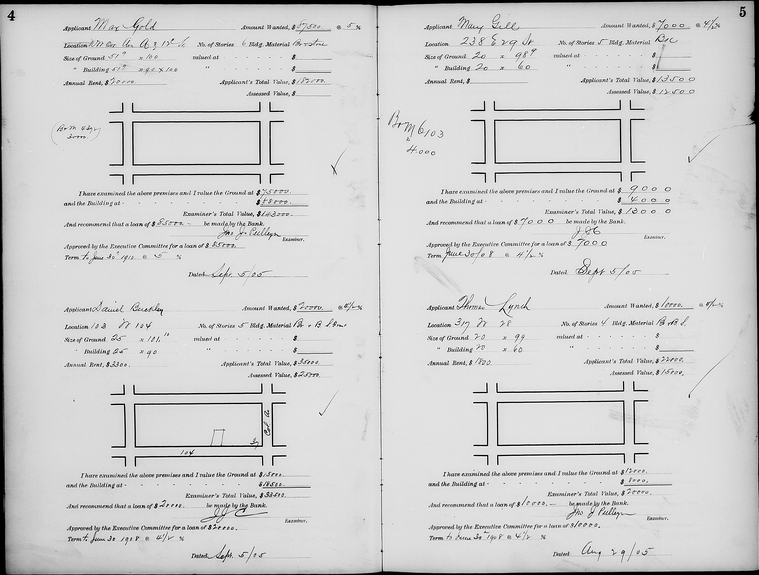 4
Applicant Max Gold Amount Wanted, $ 87500. @ 5 %
Location N.W. Cor. Av A & 12" St. No. of Stories 6 Bldg. Material
Size of Ground 51" x 100 valued at $
" Building 51" x 90 x 100 " $
Annual Rent, $ 20000. Applicant's Total Value, $ 182000.
Assessed Value, $
I have examined the above premises and I value the Ground at $ 75000.
and the Building at $ 88000.
Examiner's Total Value, $ 143000.
And recommend that a loan of $ 85000 — be made by the Bank.
Jno. J. Pulleyn
Examiner.
Approved by the Executive Committee for a loan of $ 85000.
Term to June 30" 1910 @ 5 %
Dated Sept. 5/05
Applicant Daniel Buckley Amount Wanted, $ 20000. @ 4 1/2 %
Location 103 W 104 No. of Stories 5 Bldg. Material
Size of Ground 25 x 101.10 valued at $
" Building 25 x 90 " $
Annual Rent, $ 3300. Applicant's Total Value, $ 35000.
Assessed Value, $ 25000.
Col. Av.
104
I have examined the above premises and I value the Ground at $ 15000.
and the Building at $ 18500.
Examiner's Total Value, $ 33500.
And recommend that a loan of $ 20000. be made by the Bank.
Examiner.
Approved by the Executive Committee for a loan of $ 20000.
Term to June 30 1908 @ 4 1/2 %
Dated Sept. 5/05
5
Applicant Mary Gill Amount Wanted, $ 7000 @ 4 1/2 %
Location 238 E 29 St No. of Stories 5 Bldg. Material
Size of Ground 20 x 98 9 valued at $
" Building 20 x 60 " $
Annual Rent, $ Applicant's Total Value, $ 13500
Assessed Value, $ 12500
B & M 6103
4000
I have examined the above premises and I value the Ground at $ 9000
and the Building at $ 4000
Examiner's Total Value, $ 13000
And recommend that a loan of $ 7000 be made by the Bank.
Examiner.
Approved by the Executive Committee for a loan of $ 7000
Term June 30/08 @ 4 1/2 %
Dated Sept 5/05
Applicant Thomas Lynch Amount Wanted, $ 10000. @ 4 1/2 %
Location 317 W 28 No. of Stories 4 Bldg. Material
Size of Ground 20 x 99 valued at $
" Building 20 x 60 " $
Annual Rent, $ 1800. Applicant's Total Value, $ 22000.
Assessed Value, $ 15000.
I have examined the above premises and I value the Ground at $ 12000.
and the Building at $ 8000.
Examiner's Total Value, $ 20000.
And recommend that a loan of $ 10000. — be made by the Bank.
Jno J Pulleyn
Examiner.
Approved by the Executive Committee for a loan of $ 10000.
Term to June 30" 1908 @ 4 1/2 %
Dated Aug 29/05